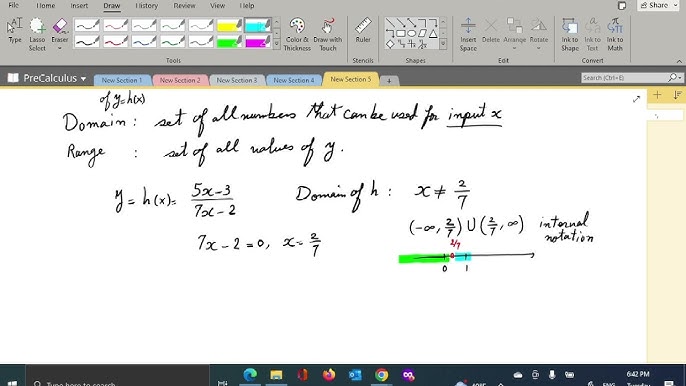 File Home Insert Draw History Review View Help
Share
Type
Lasso Select
Eraser
Color & Thickness
Draw with Touch
Ruler
Ink to Shape
Ink to Text
Ink to Math
Tools
Shapes
Convert
PreCalculus
New Section 1
New Section 2
New Section 3
New Section 4
New Section 5
+
Search (Ctrl+E)
of y=h(x)
Domain : set of all numbers that can be used for input x
Range : set of all values of y.
y = h(x) = (5x-3)/(7x-2)
Domain of h : x ≠ 2/7
(-∞, 2/7) ∪ (2/7, ∞) interval notation
7x-2=0, x=2/7
2/7
0 1
Type here to search
6:42 PM
Tuesday